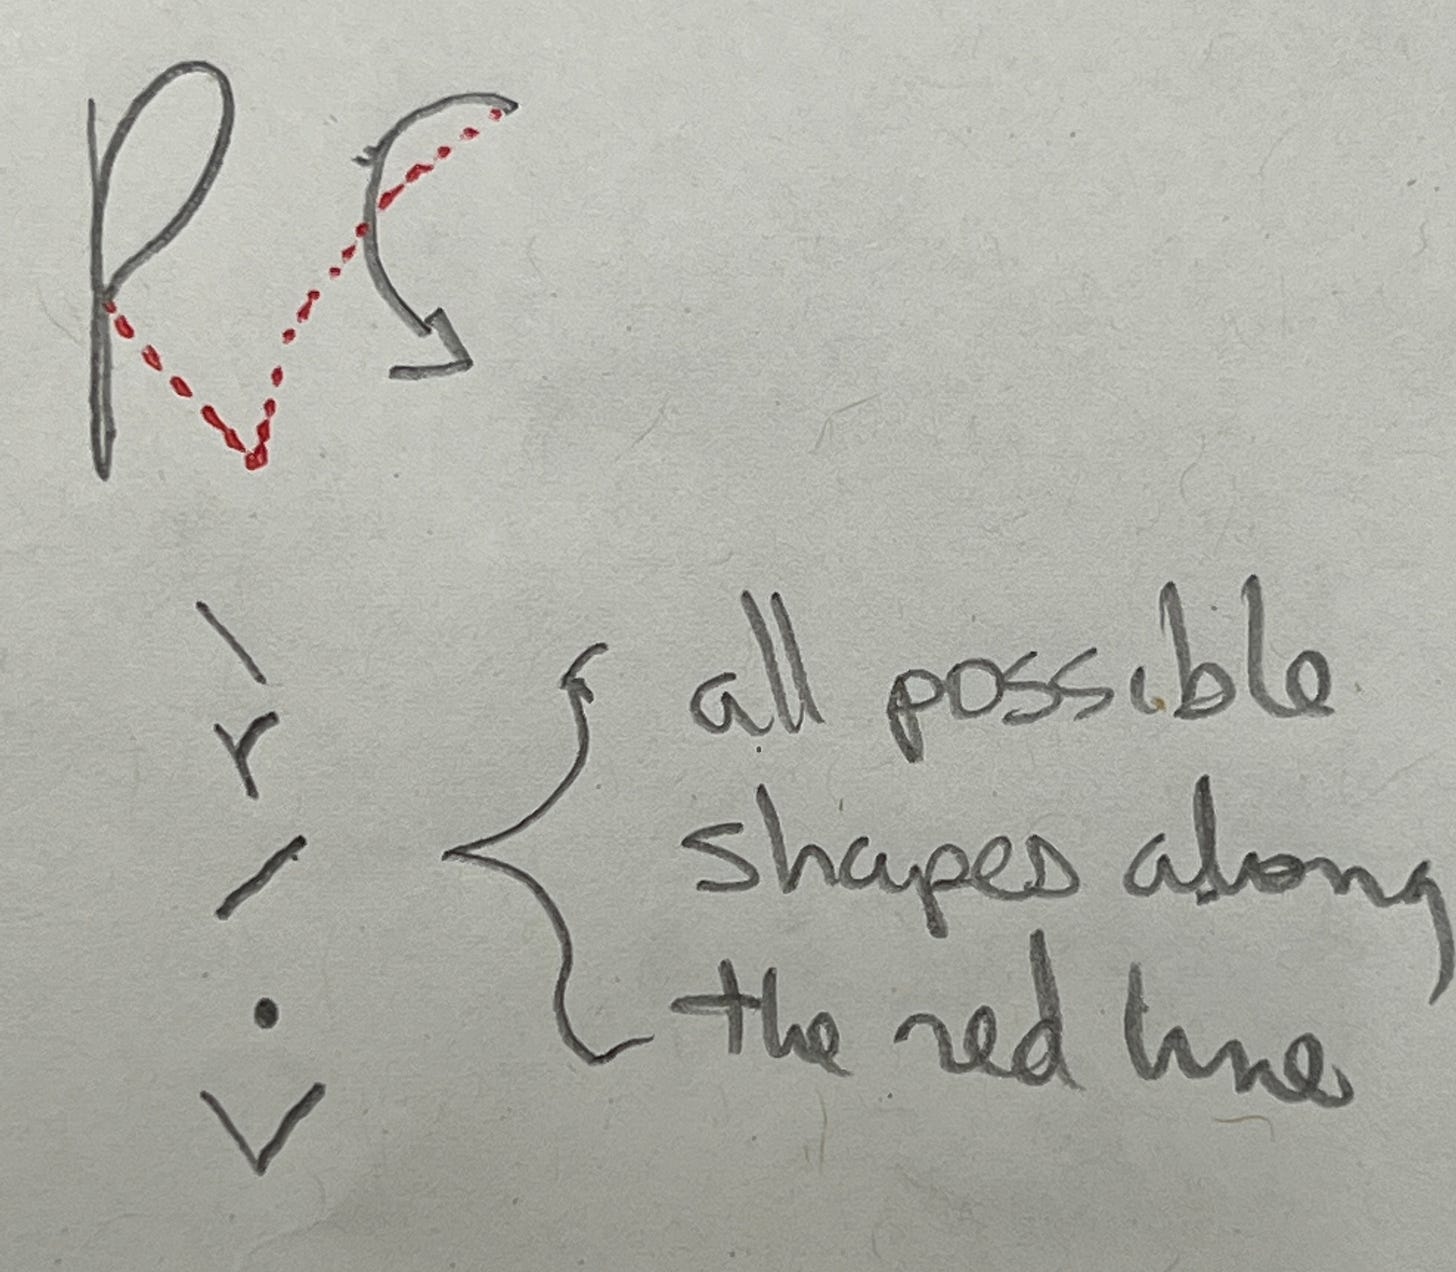 RS
\
r
/
.
V
all possible
shapes along
the red line